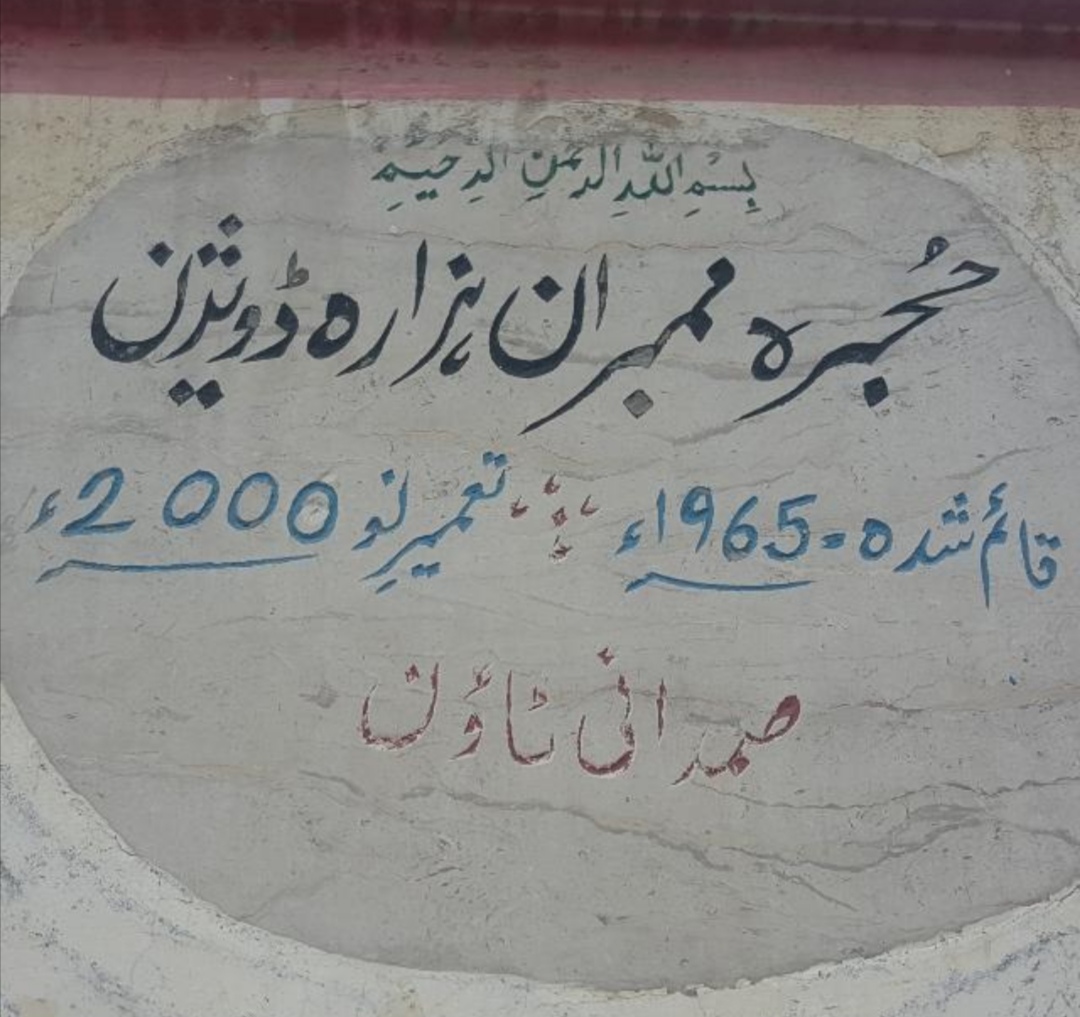 بِسْمِ اللّٰهِ الرَّحْمٰنِ الرَّحِيْمِ
حُجرہ ممبران ہزارہ ڈویژن
قائم شدہ - 1965ء تعمیرِ نو 2000ء
صمدانی ٹاؤن